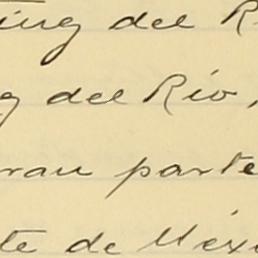 ing del R
g del Río,
ran parte
te de Méxi